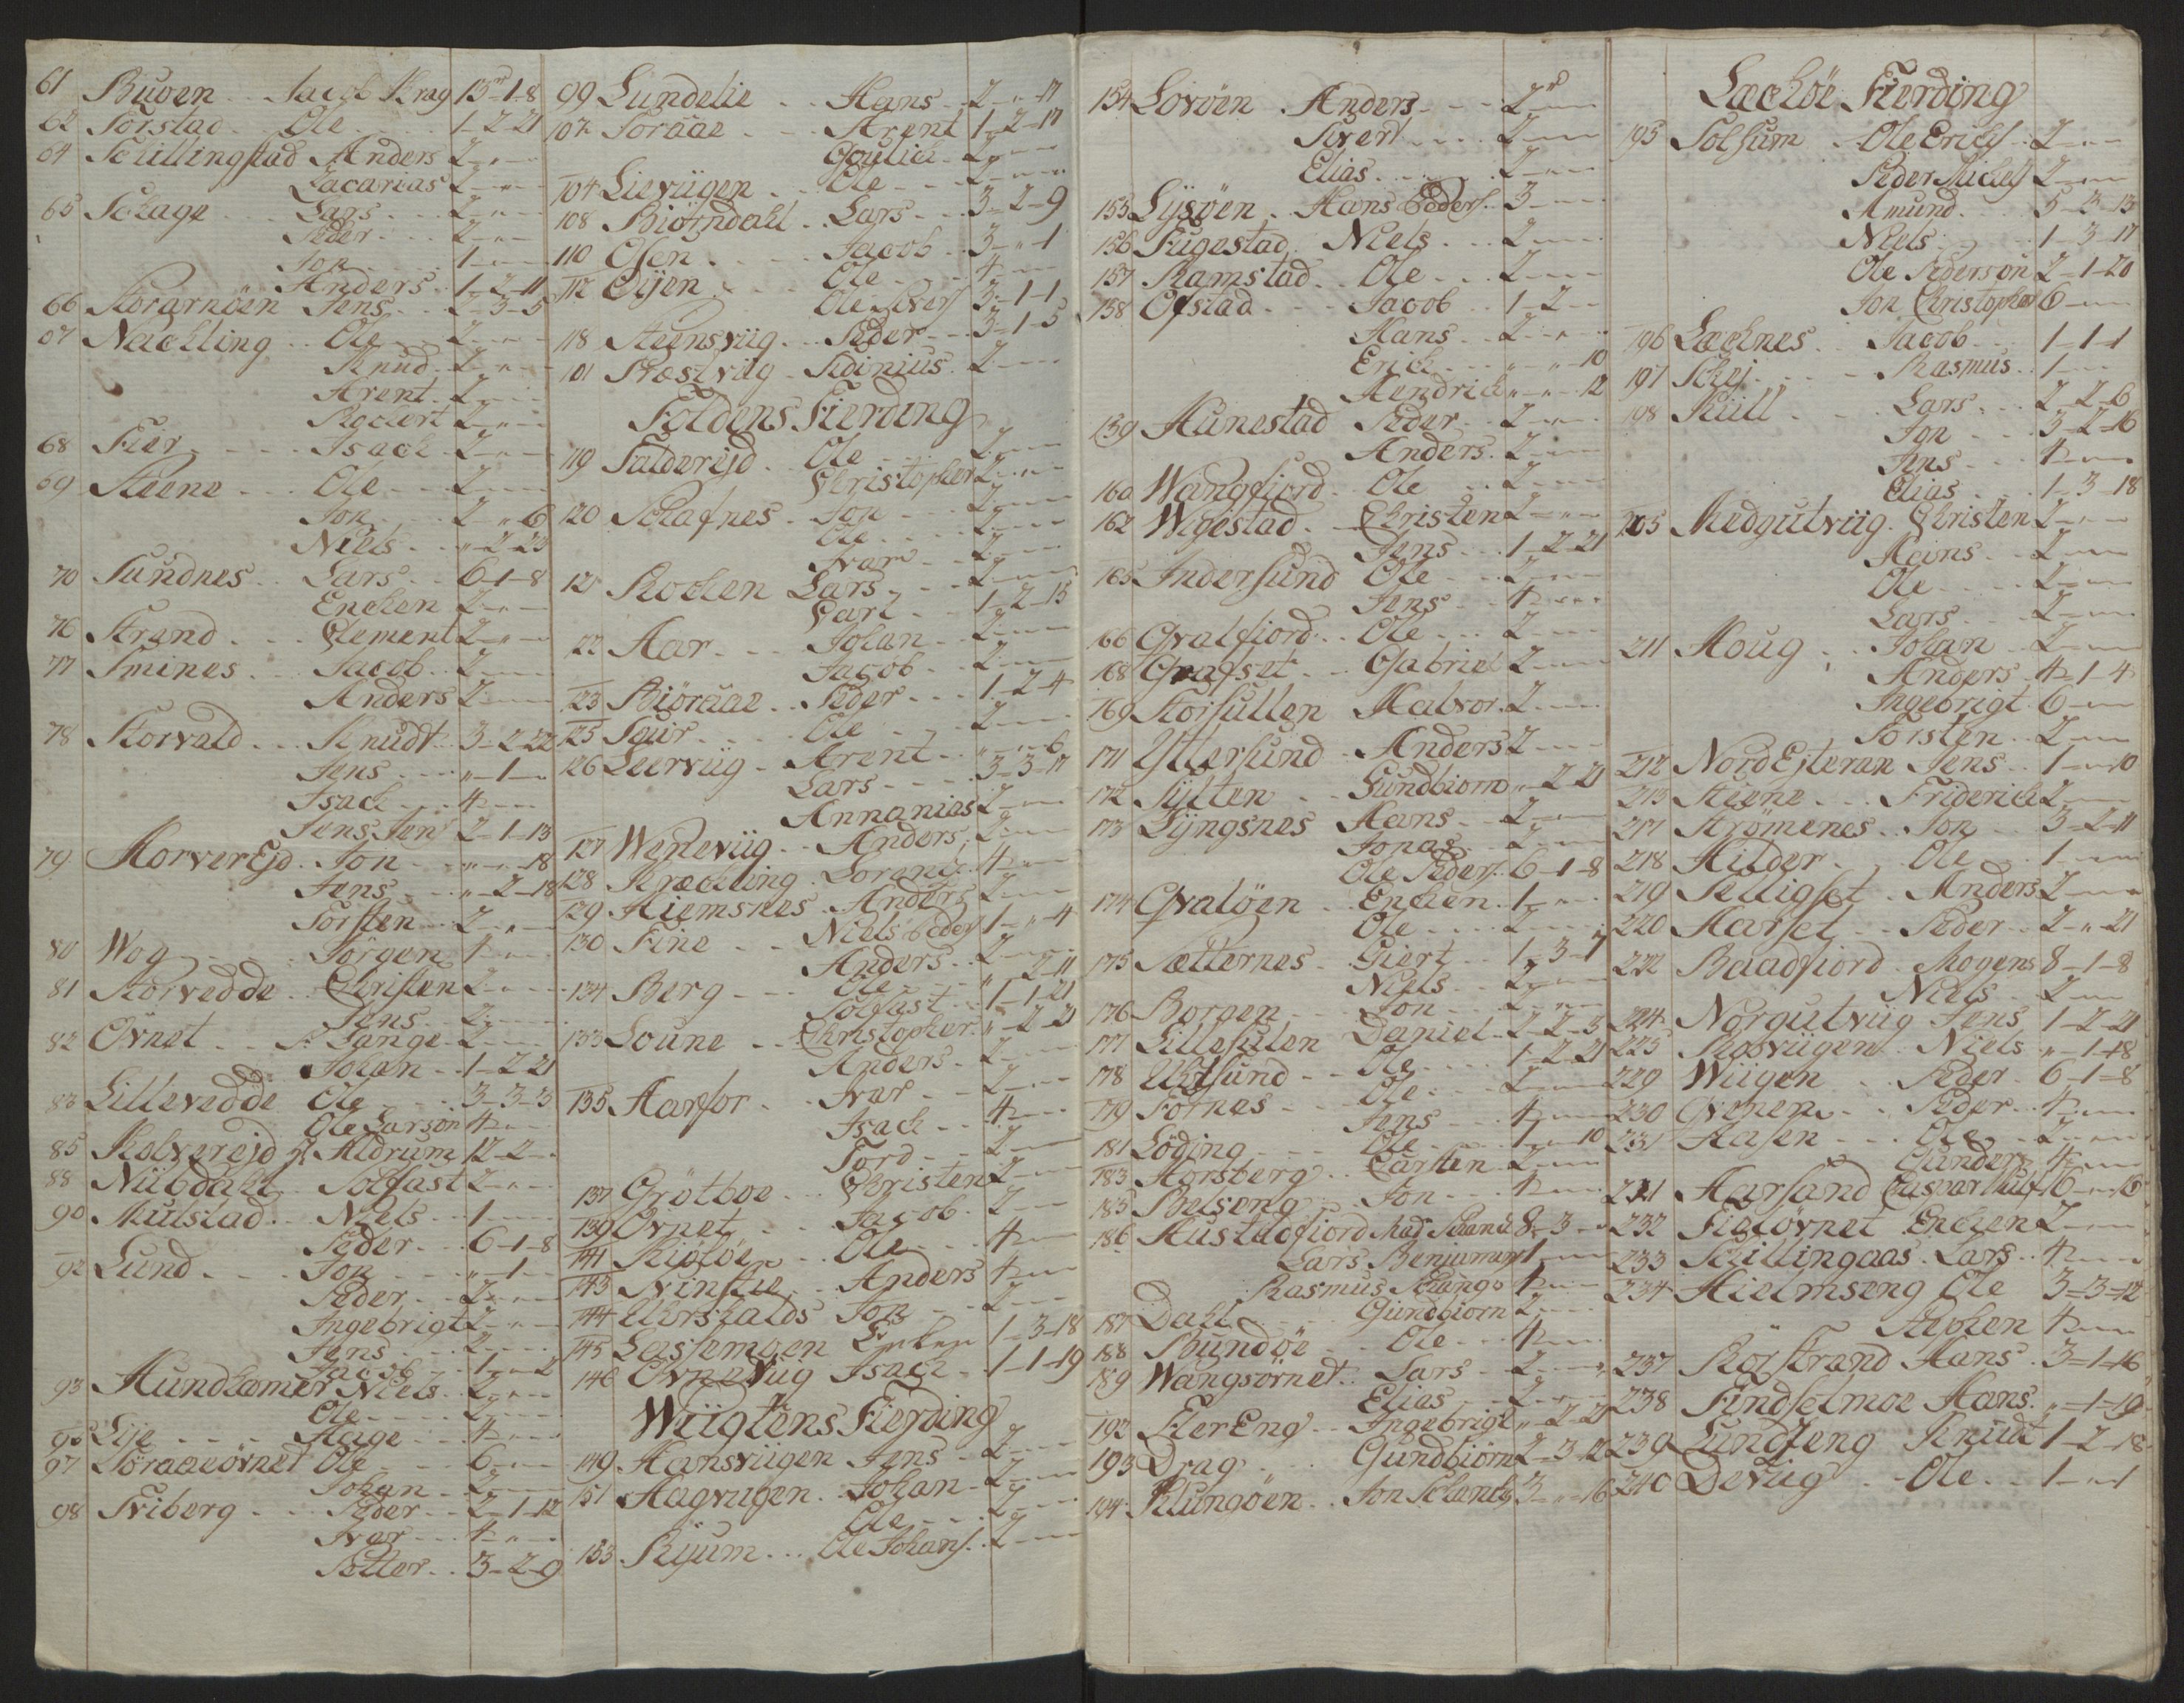 61 Buöen .. Jacob Krag 13-1-8
62 Torstad .. Ole .... 1-2-21
64 Schillingstad Anders 2-"-
Zacarias 2-"-
65 Schage .. Lars ... 2-"-
Peder ... 2-"-
Jon ... 1---
Anders .. 1-2-11
66 Storarnöen Jens ... 2-3-5
67 Nachling .. Ole ... 2-"-
Knud .. 2-"-
Arent .. 2-"-
Rochert 2-"-
68 Fier .... Isach .. 2-"-
69 Steene ... Ole ... 2---
Jon .... 2-"-6
Niels .. "-2-23
70 Sundnes .. Lars .. 6-1-8
Enchen 2-"-
76 Strand ... Clement 2-"-
77 Smines ... Jacob .. 2---
Anders 2---
78 Storvald ... Knudt .. 3-2-22
Jens .... "-1-
Isach ... 4---
Jens Jens 2-1-13
79 Horver Ejd .. Jon ... "-"-18
Jens ... "-2-18
Torsten .. 2-"-
80 Wog .... Jörgen 4---
81 Storvedde .. Christen 2---
Jens .. 2---
82 Övnet ... Tange 2---
Johan .. 1-2-21
83 Lillevedde Ole ... 3-3-3
Ole Larson 4---
85 Kolverejd Hr Aldrum 12-2-
88 Niibdahl .. Solfast 2-"-
90 Mulstad .. Niels .. 1---
Peder .. 6-1-8
92 Lund .... Jon .... "-1-
Peder .. 2---
Ingebrigt 2-"-
Jens .. 2---
Jacob .. 1-"-2
93 Hundhamer Niels .. 2-"-
Ole .... 2---
95 Eije .... Helge .. 4---
97 Toraaeövnet Ole ... 6-"-
Johan .. 2---
98 Sviberg ... Peder .. 2-1-12
Ivar ... 4---
Petter .. 3-2-9
99 Lundelie .. Hans .. 2-"-17
102 Toraae ... Arent 1-2-17
Goulich 2---
104 Lieviigen .. Ole ... 2---
108 Biörndahl .. Lars ... 3-2-9
110 Osen .... Jacob .. 3-"-1
112 Eijen .... Ole ... 4---
Ole Ivers 3-1-1
118 Steensviig .. Peder ... 3-1-5
101 Næstviig .. Sidinius 2---
Foldens Fierding
119 Falderejd .. Ole ... 2---
Christopher 2---
120 Schafnes .. Jon ... 2---
Ole .... 2---
Ivar ... 2---
121 Rochen Lars .... 2---
Carl ... 1-2-15
122 Aar .... Johan .. 2---
Jacob .. 2---
123 Biöraae .. Peder ... 1-2-4
125 Souir .... Ole ... 2---
126 Leerviig .. Arent .. "-"-6
Lars ... 3-3-17
Annanias 2---
127 Weneviig .. Anders 2---
128 Kræckling .. Lorentz 4---
129 Hiemsnes .. Anders 2---
130 Fine ... Niels Peders 1-"-4
Anders .. 2---
134 Berg .... Ole .... "-2-11
Solfast .. 1-1-21
133 Soune ... Christopher "-2-21
Anders .. 2---
135 Aarfor ... Ivar ... 2---
Isach ... 4---
Tord ... 2---
137 Grötboe .. Christen 2---
139 Övnet .. Jacob .. 2---
141 Kiölöe .. Ole ... 4---
143 Ninsie .. Anders 4---
144 Morshalds Jon ... 2---
145 Lassemoen Enken 1-3-18
146 Övneviig Isach .. 1-1-19
Wiigtens Fierding
149 Hansviigen Jens .. 2---
151 Hagviigen .. Johan .. 2---
Ole .... 2---
153 Ryum ... Ole Johans. 2---
154 Lovöen .. Anders ... 2---
Siver .... 2---
Elias ..... 2---
155 Lysöen .. Hans Peders. 3---
156 Fugestad .. Niels ... 2---
157 Ramstad .. Ole ... 2---
158 Ofstad ... Jacob .. 1-2-
Hans .. 2-"-
Erich ... "-"-10
Hendrich "-"-12
159 Hunestad Peder .. 2---
Anders .. 2---
160 Wangfiord .. Ole .. 2---
162 Wigestad .. Christen 2---
Jens ... 1-2-21
165 Indersund Ole ... 2---
Jens ... 4---
166 Gvalfiord .. Ole ... 2---
168 Grafset .. Gabriel 2---
169 Storsullen Halvor 2---
171 Yttersund .. Anders 2---
172 Sylten ... Gundbiorn "-2-21
173 Lyngsnes Hans .. 2---
Jonas .. 2---
Ole Peders. 6-1-8
174 Gvalöen .. Enchen .. 1-"-
Ole .... 2---
175 Sætternes .. Giert .. 1-3-7
Niels .. 2---
176 Borgen .... Jon ... 2---
177 Lillesulen Daniel 2-2-3
178 Ulfsund .. Ole .... 1-2-21
179 Fornes ... Ole ... 2---
Jens ... 4---
181 Löding ... Ole ... 1-"-10
183 Horsberg .. Carsten 2---
185 Belseng .. Jon ... 4---
186 Hustadfiord Mad. Schanch 8-3-
Lars Benjamins 1---
Rasmus Schang 4---
187 Dahl ... Gundbiorn 2---
188 Bundöe .. Ole ... 4---
189 Wangsövnet .. Lars .. 2---
Elias .. 2---
192 Fler Eng .. Ingebrigt "-2-21
193 Drag ... Gundbiorn 2-3-12
194 Klungöen .. Jon Schanch 3-"-16
Lechöe Fierding
195 Solsum .. Ole Erichs 2---
Peder Michels 2---
Amund ... 5-3-13
Niels .... 1-3-17
Ole Pedersön 2-1-20
Jon Christophers 6---
196 Lechnes .. Jacob .. 1-1-1
197 Schej .... Rasmus .. 1---
198 Kiill ... Lars ... 2-2-6
Jon ... 3-2-16
Jens ... 4---
Elias ... 1-3-18
205 Medgulviig .. Christen 2---
Heins .. 2---
Ole .... 2---
Lars ... 2---
211 Houg ... Johan .. 2---
Anders 4-1-4
Ingebrigt 6---
Torsten .. 2---
212 Nord Ejteran Jens .. 1-"-10
213 Steene ... Friderich 2---
217 Strömenes .. Jon ... 3-2-11
218 Hilder ... Ole ... 1---
219 Selligset .. Anders 2---
220 Harset .. Peder .. 2-"-21
222 Baadfiord .. Mogens 8-1-8
Niels .. 2---
224 Norgulviig Jens 1-2-21
225 Mosviigen .. Niels "-1-18
229 Wiigen .. Peder .. 6-1-8
230 Gvenen ... Peder .. 4---
231 Hasen ... Ole ... 2---
Gunder 4---
241 Harsand Casper 16---
232 Fielövnet Enchen 2---
233 Schillingaas .. Lars .. 4---
234 Hielmseng Ole 3-3-12
Stephen 4---
237 Rörstrand Hans .. 3-1-16
238 Findselmoe Hans .. "-1-19
239 Lundseng Knudt 1-2-18
240 Deviig .. Ole .. 1-"-1